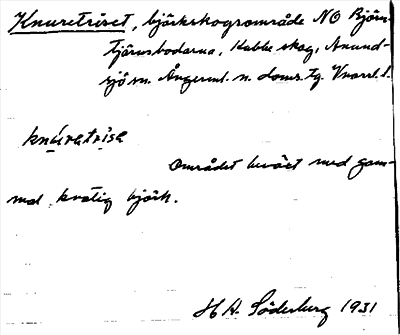 Knuretriset, björkskogsområde NO Björn-
tjärnsbodarna, Kubbe skog, Anund-
sjö sn. Ångerml. n. doms. tg. Vnorrl. l.
knúratrisa
Området beväxt med gam-
mal kvistig björk.
H A. Söderberg 1931